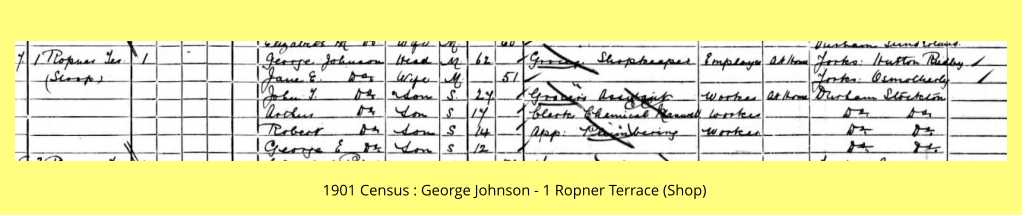 Elizabeth M Do Wife M 60 Durham Sunderland
7 1 Ropner Ter 1 George Johnson Head M 62 Grocer Shopkeeper Employer At Home Yorks: Hutton Rudby
(Shop) Jane E. Do Wife M 51 Yorks: Osmotherly
John T. Do Son S 27 Grocer's Assistant Worker At Home Durham Stockton
Arthur Do Son S 17 Clerk Chemical Worker Do Do
Robert Do Son S 14 App: Plumbering Worker Do Do
George E Do Son S 12 Do Do
1901 Census : George Johnson - 1 Ropner Terrace (Shop)